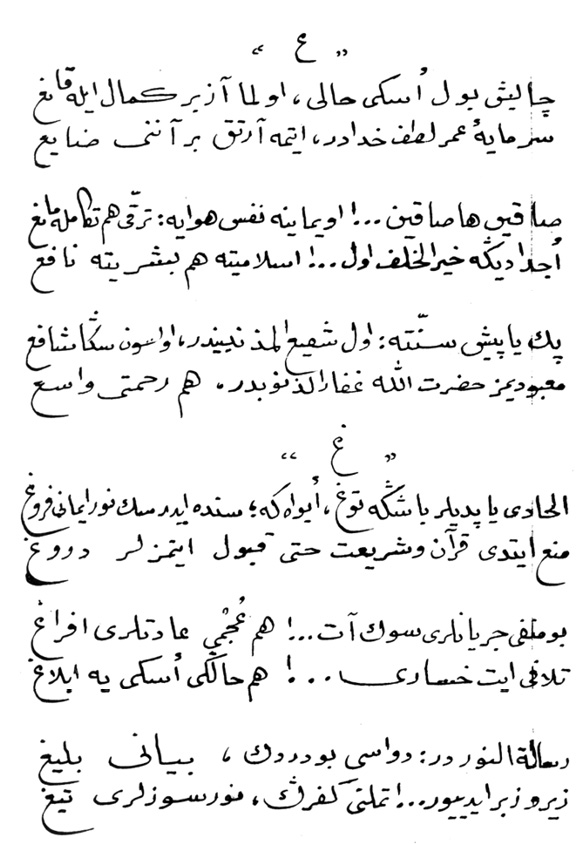 « ع »
چاليش بول اُسكى حالى، اولما آز بر كمال ايله قانع
سرمايهٔ عمر لطف خدادر، ايتمه آرتق بر آننى ضايع
صاقين ها صاقين...! اويماينه نفس هوايه: ترقّى هم تكامله مانع
اُجداديڭه خير الخلف اول...! اسلاميته هم بشريته نافع
پك ياپيش سنّته: اول شفيع المذنبيندر، اولسون سڭا شافع
معبوديمز حضرت الله غفار الذنوبدر، هم رحمتى واسع
« غ »
الحادى ياپديلر باشڭه توغ، اُيواه كه؛ سنده ايدرمسك نور ايمانى فروغ
منع ايتدى قرآن وشريعت حتى قبول ايتمزلر دروغ
بو منفى جريانلرى سوك آت...! هم عُجْمِي عادتلرى افراغ
تلافى ايت خسارى...! هم حالڭى اُسكى يه ابلاغ
رسالة النور در: دواسى بودردك، بيانى بليغ
زير وزبر ايدييور...! تملنى كفرڭ، نور سوزلرى تيغ